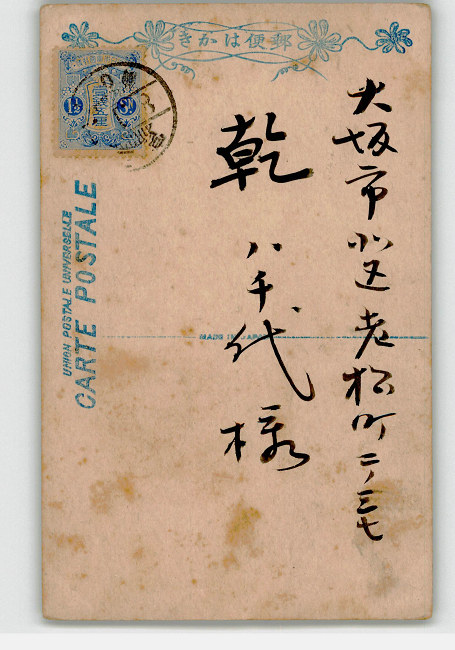 郵便はかき
大坂市北区老松町二ノ三七
乾 八千代様
UNION POSTALE UNIVERSELLE
CARTE POSTALE
MADE IN JAPAN
1½